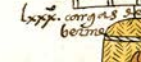 lxxx. cargas de
berme